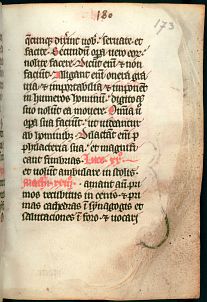 180
173
q̄cunq; dixĩnt uob̃. ſeruate et
facite. Secundũ opa ũero eor̃
nolite facere. Dicũt eni᷒ & non
faciũt. Alligant eni᷒ onera gra
uia & inportabilia & inponũt
in humeros hominũ. digito aũt
ſuo nolũt ea mouere. Omnia ũ
opa ſua faciũt. ut uideantur
ab hominib;. Dilatãt eni᷒
phylacteria ſua. et magnifi
cant fimbrias. Luce. xx.
et uolũt ambulare in ſtolis
Mathi. xxiij. amant aũt pri
mos recubitus in cenis. & pri
mas cathedras ĩ ſynagogis et
ſalutaciones ĩ foro. & uocari